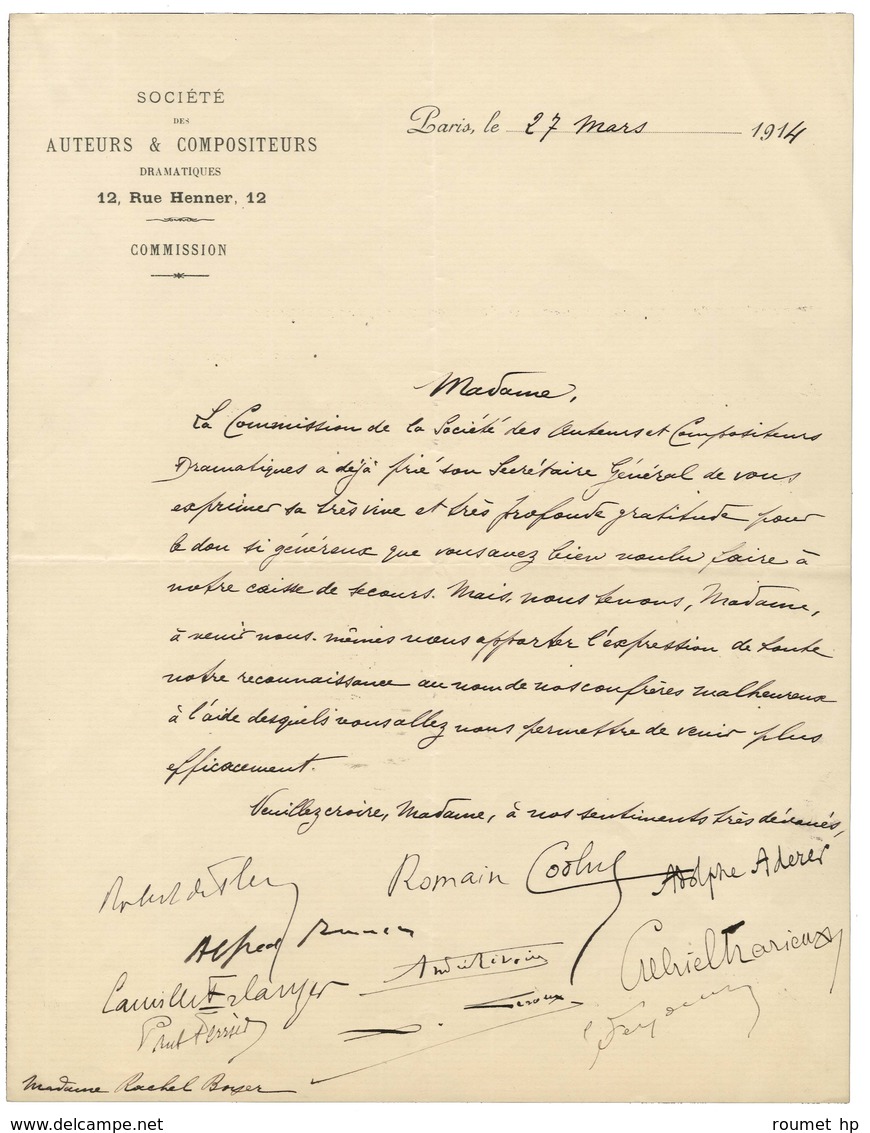 SOCIÉTÉ
DES
AUTEURS & COMPOSITEURS
DRAMATIQUES
12, Rue Henner, 12
COMMISSION
Paris, le 27 Mars 1914
Madame,
La Commission de la Société des Auteurs et Compositeurs
Dramatiques a déjà prié son Secrétaire Général de vous
exprimer sa très vive et très profonde gratitude pour
le don si généreux que vous avez bien voulu faire à
notre caisse de secours. Mais, nous tenons, Madame,
à venir nous-mêmes vous apporter l'expression de toute
notre reconnaissance au nom de nos confrères malheureux
à l'aide desquels vous allez nous permettre de venir plus
efficacement.
Veuillez croire, Madame, à nos sentiments très dévoués,
Robert de Flers
Romain Coolus
Adolphe Aderer
Alfred Bruneau
André Rivoire
Gabriel Trarieux
Camille Erlanger
Leroux
Paul Ferrier
G. Feydeau
Madame Rachel Boyer
delcampe.net
roumet hp